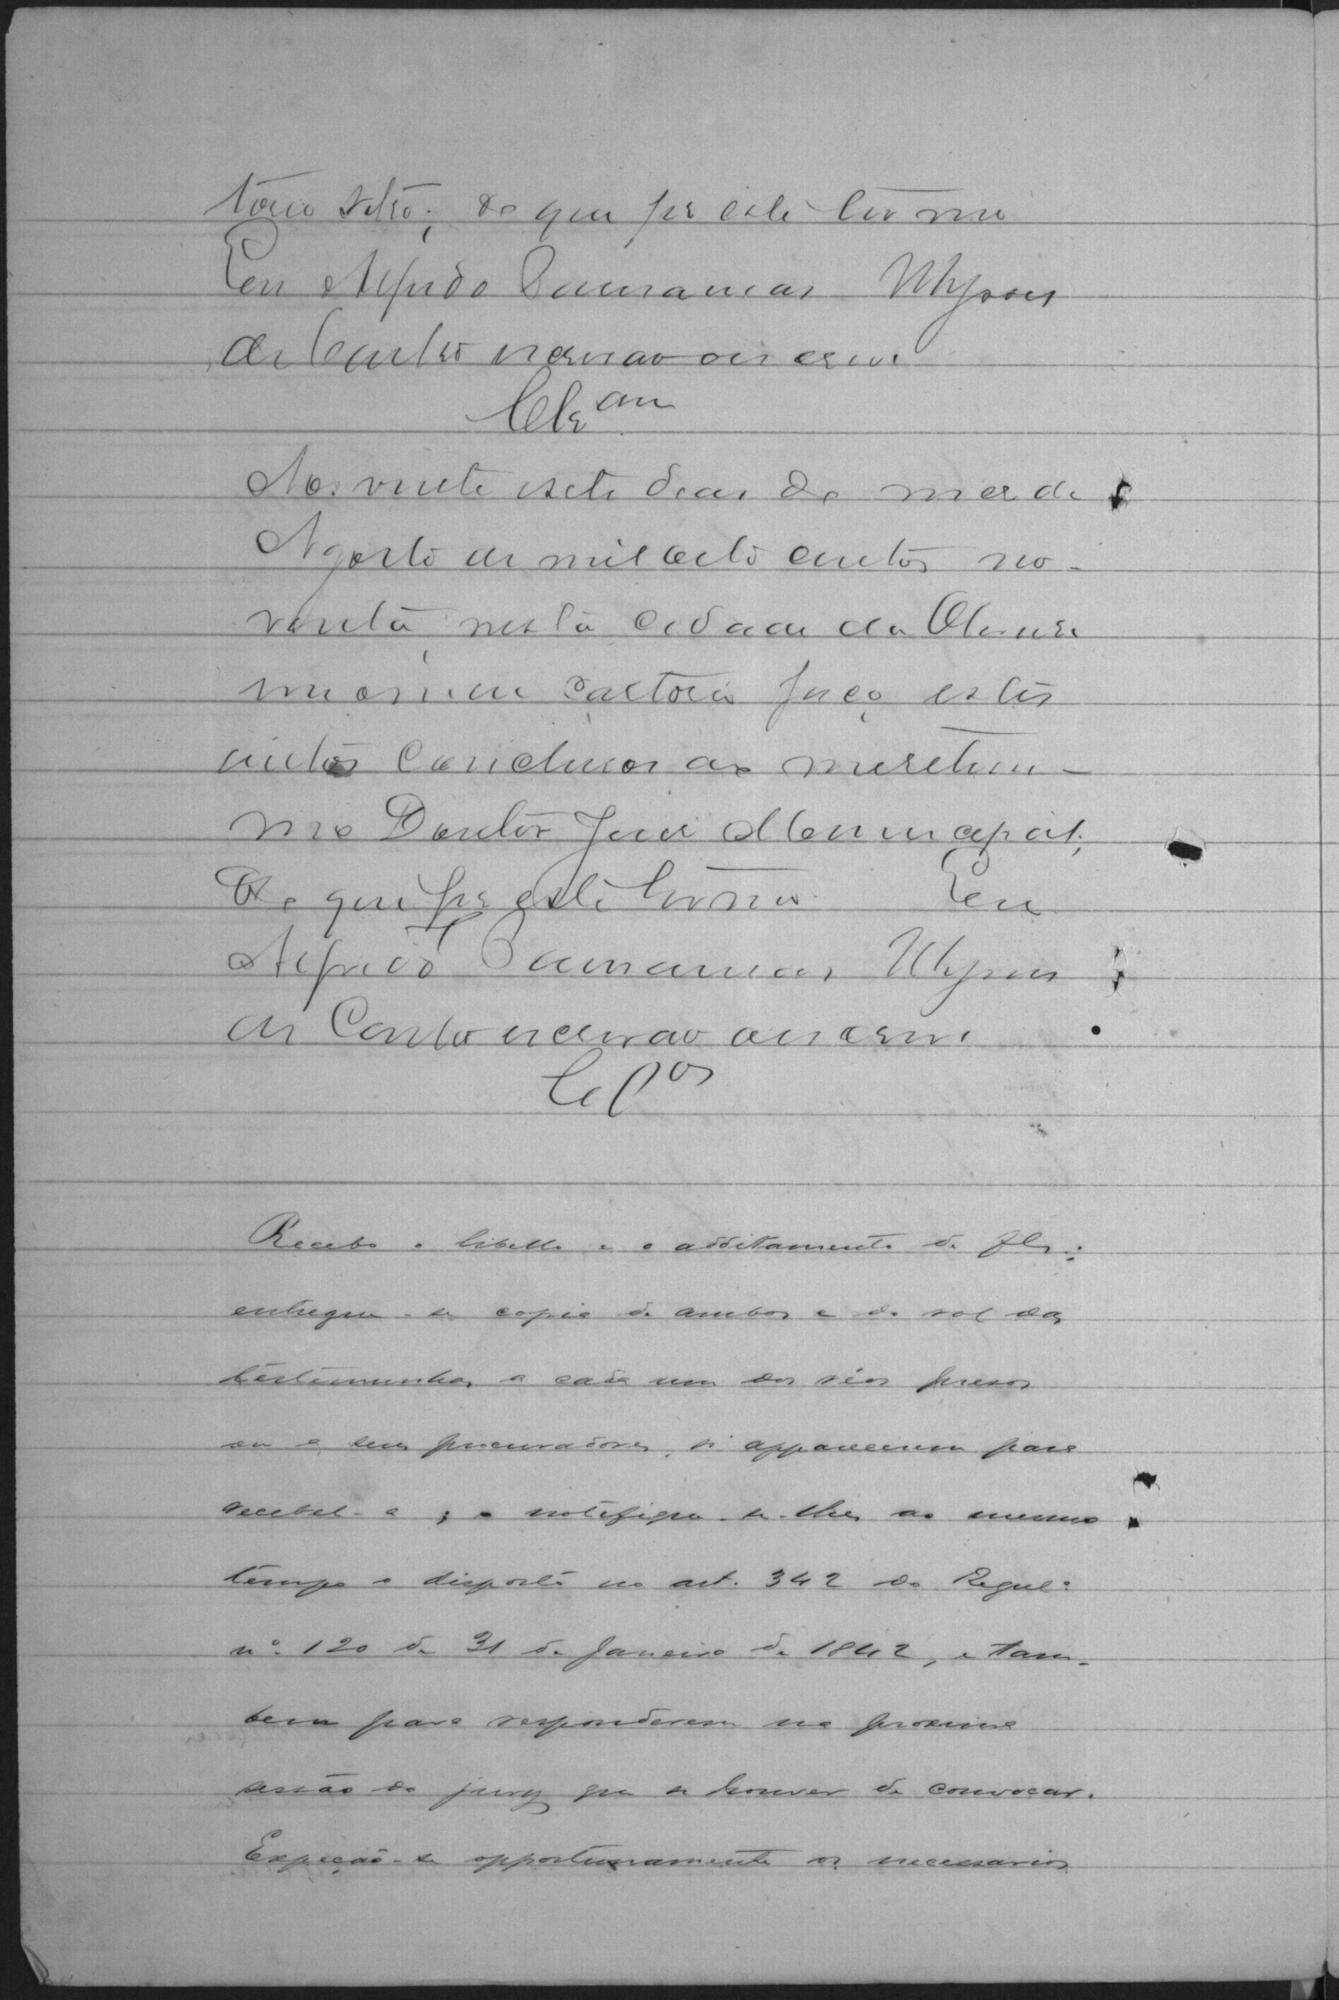 de que fiz este termo
Eu Alfredo Damaranas Ulysses
de Castro escrivão o escrevi
Clzam
Aos vinte e sete dias do mez de
Agosto de mil oito centos no-
venta, nesta cidade de
em meu cartorio faço estes
autos conclusos ao meretissi-
mo Doutor Juiz Municipal;
De que fiz este termo. Eu
Alfredo Damaranas Ulysses
de Castro escrivão o escrevi
Clos
Recebo o libello e o additamento de fls.:
entregue-se copia de ambos e do rol das
testemunhas a cada um dos réos presos
ou a seus procuradores, si apparecerem para
recebel-a; e notifique-se-lhes ao mesmo
tempo o disposto no art. 342 do Regul:
nº. 120 de 31 de Janeiro de 1842, e tam-
bem para responderem na proxima
sessão do jury que se houver de convocar.
Expeção-se opportunamente os necessarios